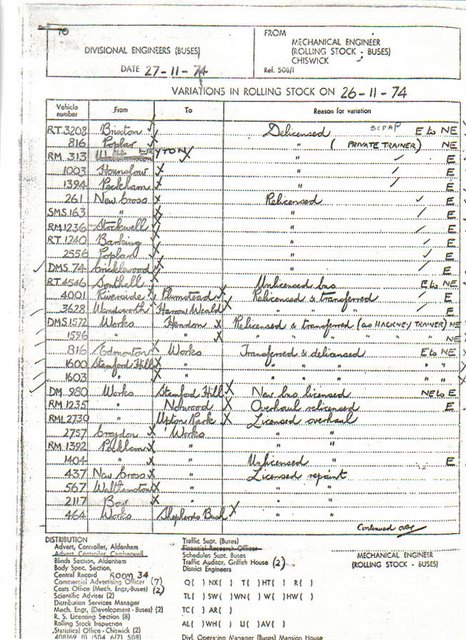 TO
DIVISIONAL ENGINEERS (BUSES)
DATE 27-11-74
FROM
MECHANICAL ENGINEER
(ROLLING STOCK - BUSES)
CHISWICK
Ref. 508/1
VARIATIONS IN ROLLING STOCK ON 26-11-74
Vehicle number From To Reason for variation
RT.3208 Brixton Delicensed SCRAP E to NE
816 Poplar " (PRIVATE TRAINER) NE
RM 313 LEYTON X " E
1003 Hounslow X " E
1394 Peckham X " E
261 New Cross X Relicensed E
SMS.163 " X " E
RM1236 Stockwell X " E
RT.1240 Barking X " E
2556 Poplar X " E
DMS.74 Cricklewood X " E
RT.4546 Southall X Unlicensed bus E to NE
4001 Riverside X Plumstead X Relicensed & transferred E
3628 Wandsworth X Harrow Weald X " " " E
DMS.1572 Works Hendon X Relicensed & transferred (as HACKNEY TRAINER) NE
1596 " " X " " " " NE
816 Edmonton X Works Transferred & delicensed E to NE
1600 Stamford Hill X " " " " " "
1603 " X " " " " " "
DM 980 Works Stamford Hill X New bus licensed NE to E
RM 1235 " Norwood X Overhaul relicensed E
RML 2730 " Upton Park X Licensed overhaul
2757 Croydon X Works " "
RM 1392 Peckham X " " "
1404 " X " Unlicensed " E
437 New Cross X " Licensed repaint
567 Walthamstow X " " "
2117 Bow X " " "
464 Works Shepherds Bush X " "
Continued over
DISTRIBUTION
Advert. Controller, Aldenham
Blinds Section, Aldenham
Body Spec. Section,
Central Record ROOM 34
Commercial Advertising Officer (7)
Costs Office (Mech. Engr. Buses) (2)
Scientific Adviser (2)
Distribution Services Manager
Mech. Engr. (Development - Buses) (2)
R.S. Licensing Section (8)
Rolling Stock Inspection
Statistical Office - Chiswick (2)
Traffic Supt. (Buses)
Financial Research Officer
Schedules Supt. Buses
Traffic Auditor, Griffith House (2)
District Engineers
Q( ) NX( ) T( ) HT( ) R( )
TL( ) SW( ) WN( ) W( ) HW( )
TC( ) AR( )
AL( ) WH( ) U( ) AV( )
Divl. Operating Manager (Buses) Mansion House
MECHANICAL ENGINEER
(ROLLING STOCK - BUSES)